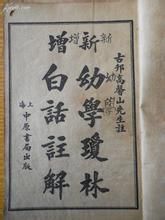 高馨山先生註
新增幼學瓊林
增
白話註解
上海中原書局出版